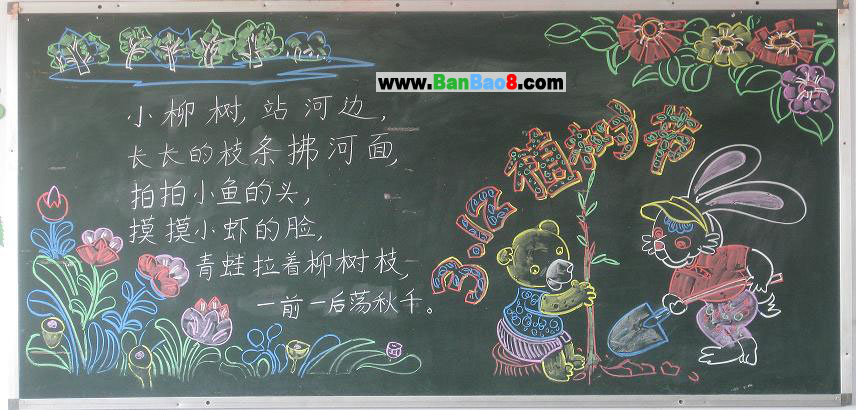 www.BanBao8.com
小柳树,站河边,
长长的枝条拂河面,
拍拍小鱼的头,
摸摸小虾的脸,
青蛙拉着柳树枝,
一前一后荡秋千。
3·12植树节